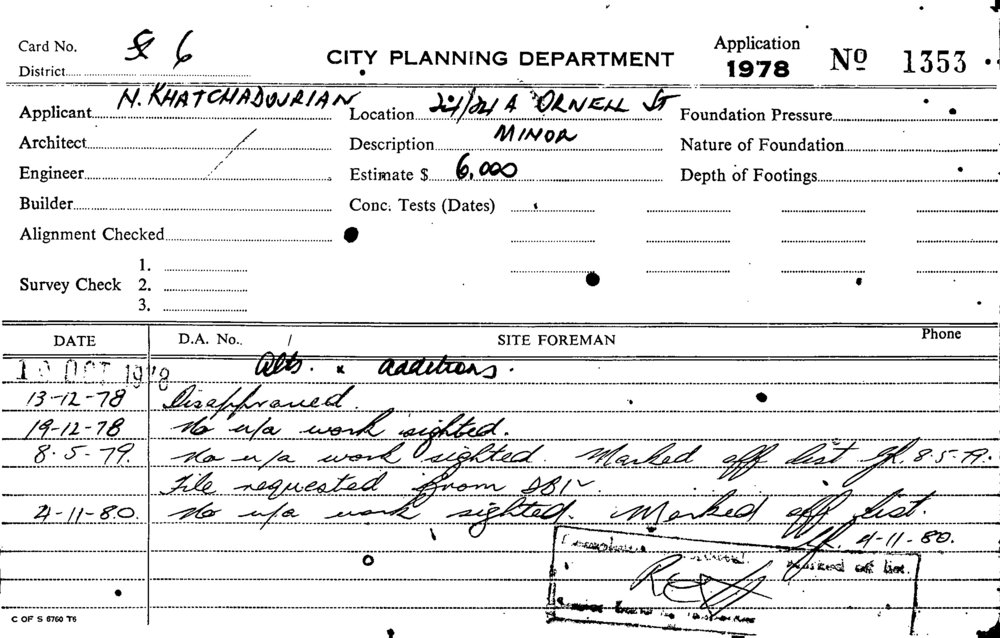 Card No. & 6
CITY PLANNING DEPARTMENT
Application
1978
No 1353
District
Applicant N. KHATCHADOURIAN
Location 24/24A ORNELL ST
Foundation Pressure
Architect
Description MINOR
Nature of Foundation
Engineer
Estimate $ 6,000
Depth of Footings
Builder
Conc. Tests (Dates)
Alignment Checked
Survey Check
1.
2.
3.
DATE D.A. No. SITE FOREMAN Phone
OCT 1978 Alts. x additions.
13-12-78 Disapproved.
19-12-78 No u/a work sighted.
8.5.79. No u/a work sighted. Marked off list 8.5.79.
File requested from
4-11-80. No u/a work sighted. Marked off list.
4-11-80.
marked off list.
C OF S 6760 T6